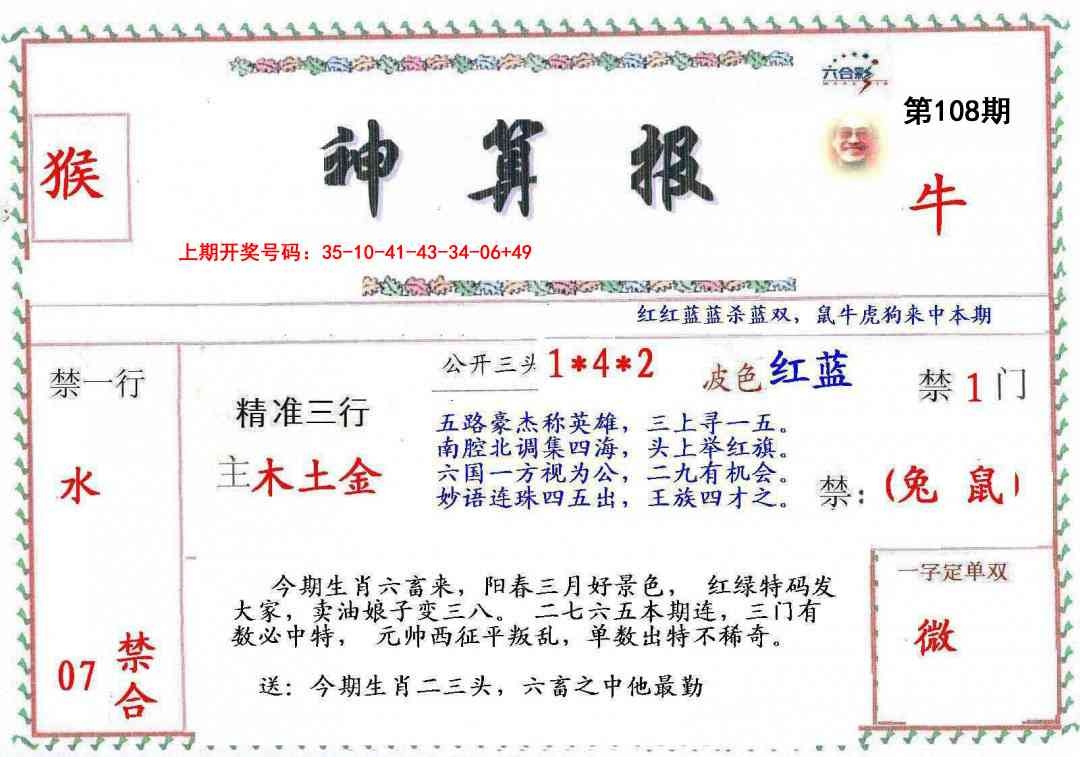 六合彩
第108期
猴
神算报
牛
上期开奖号码：35-10-41-43-34-06+49
红红蓝蓝杀蓝双，鼠牛虎狗来中本期
禁一行
公开三头 1*4*2
波色 红蓝
禁 1 门
精准三行
五路豪杰称英雄，三上寻一五。
南腔北调集四海，头上举红旗。
六国一方视为公，二九有机会。
妙语连珠四五出，王族四才之。
水
主木土金
禁：(兔 鼠)
今期生肖六畜来，阳春三月好景色， 红绿特码发
大家，卖油娘子变三八。 二七六五本期连，三门有
数必中特， 元帅西征平叛乱，单数出特不稀奇。
一字定单双
微
07 禁合
送：今期生肖二三头，六畜之中他最勤